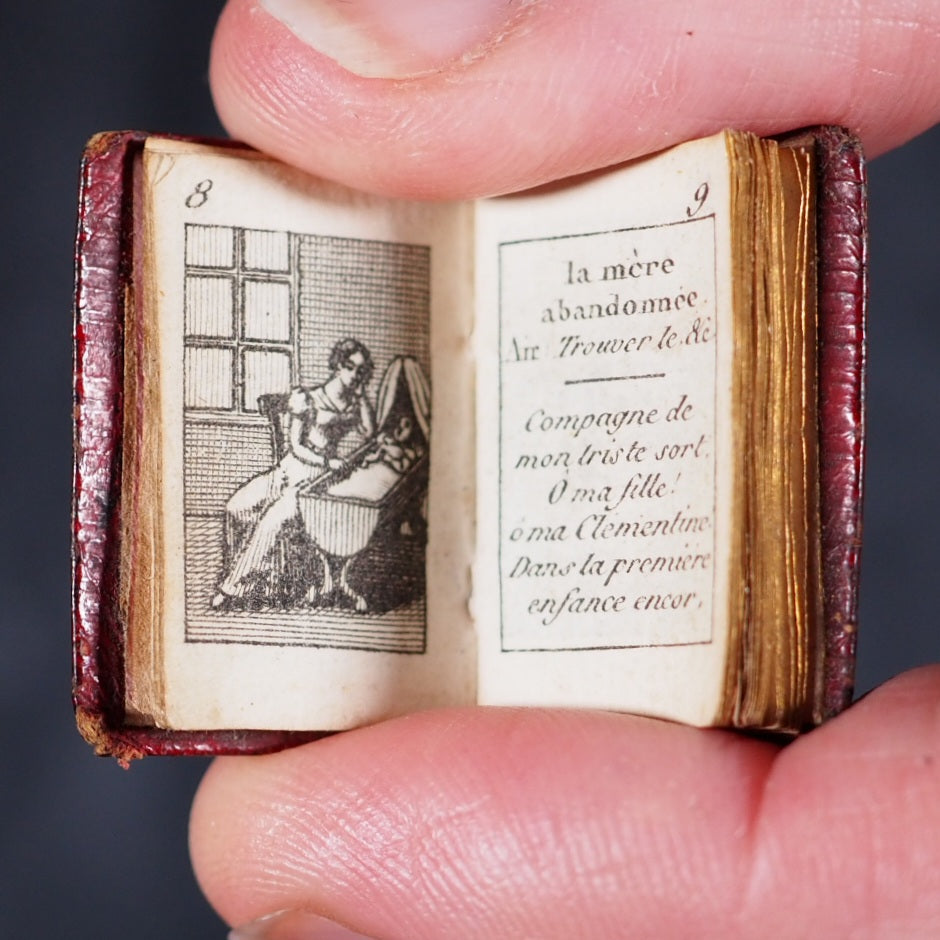 8
9
la mère
abandonnée.
Air Trouver le &c
Compagne de
mon triste sort,
O ma fille!
ô ma Clémentine
Dans la première
enfance encor,